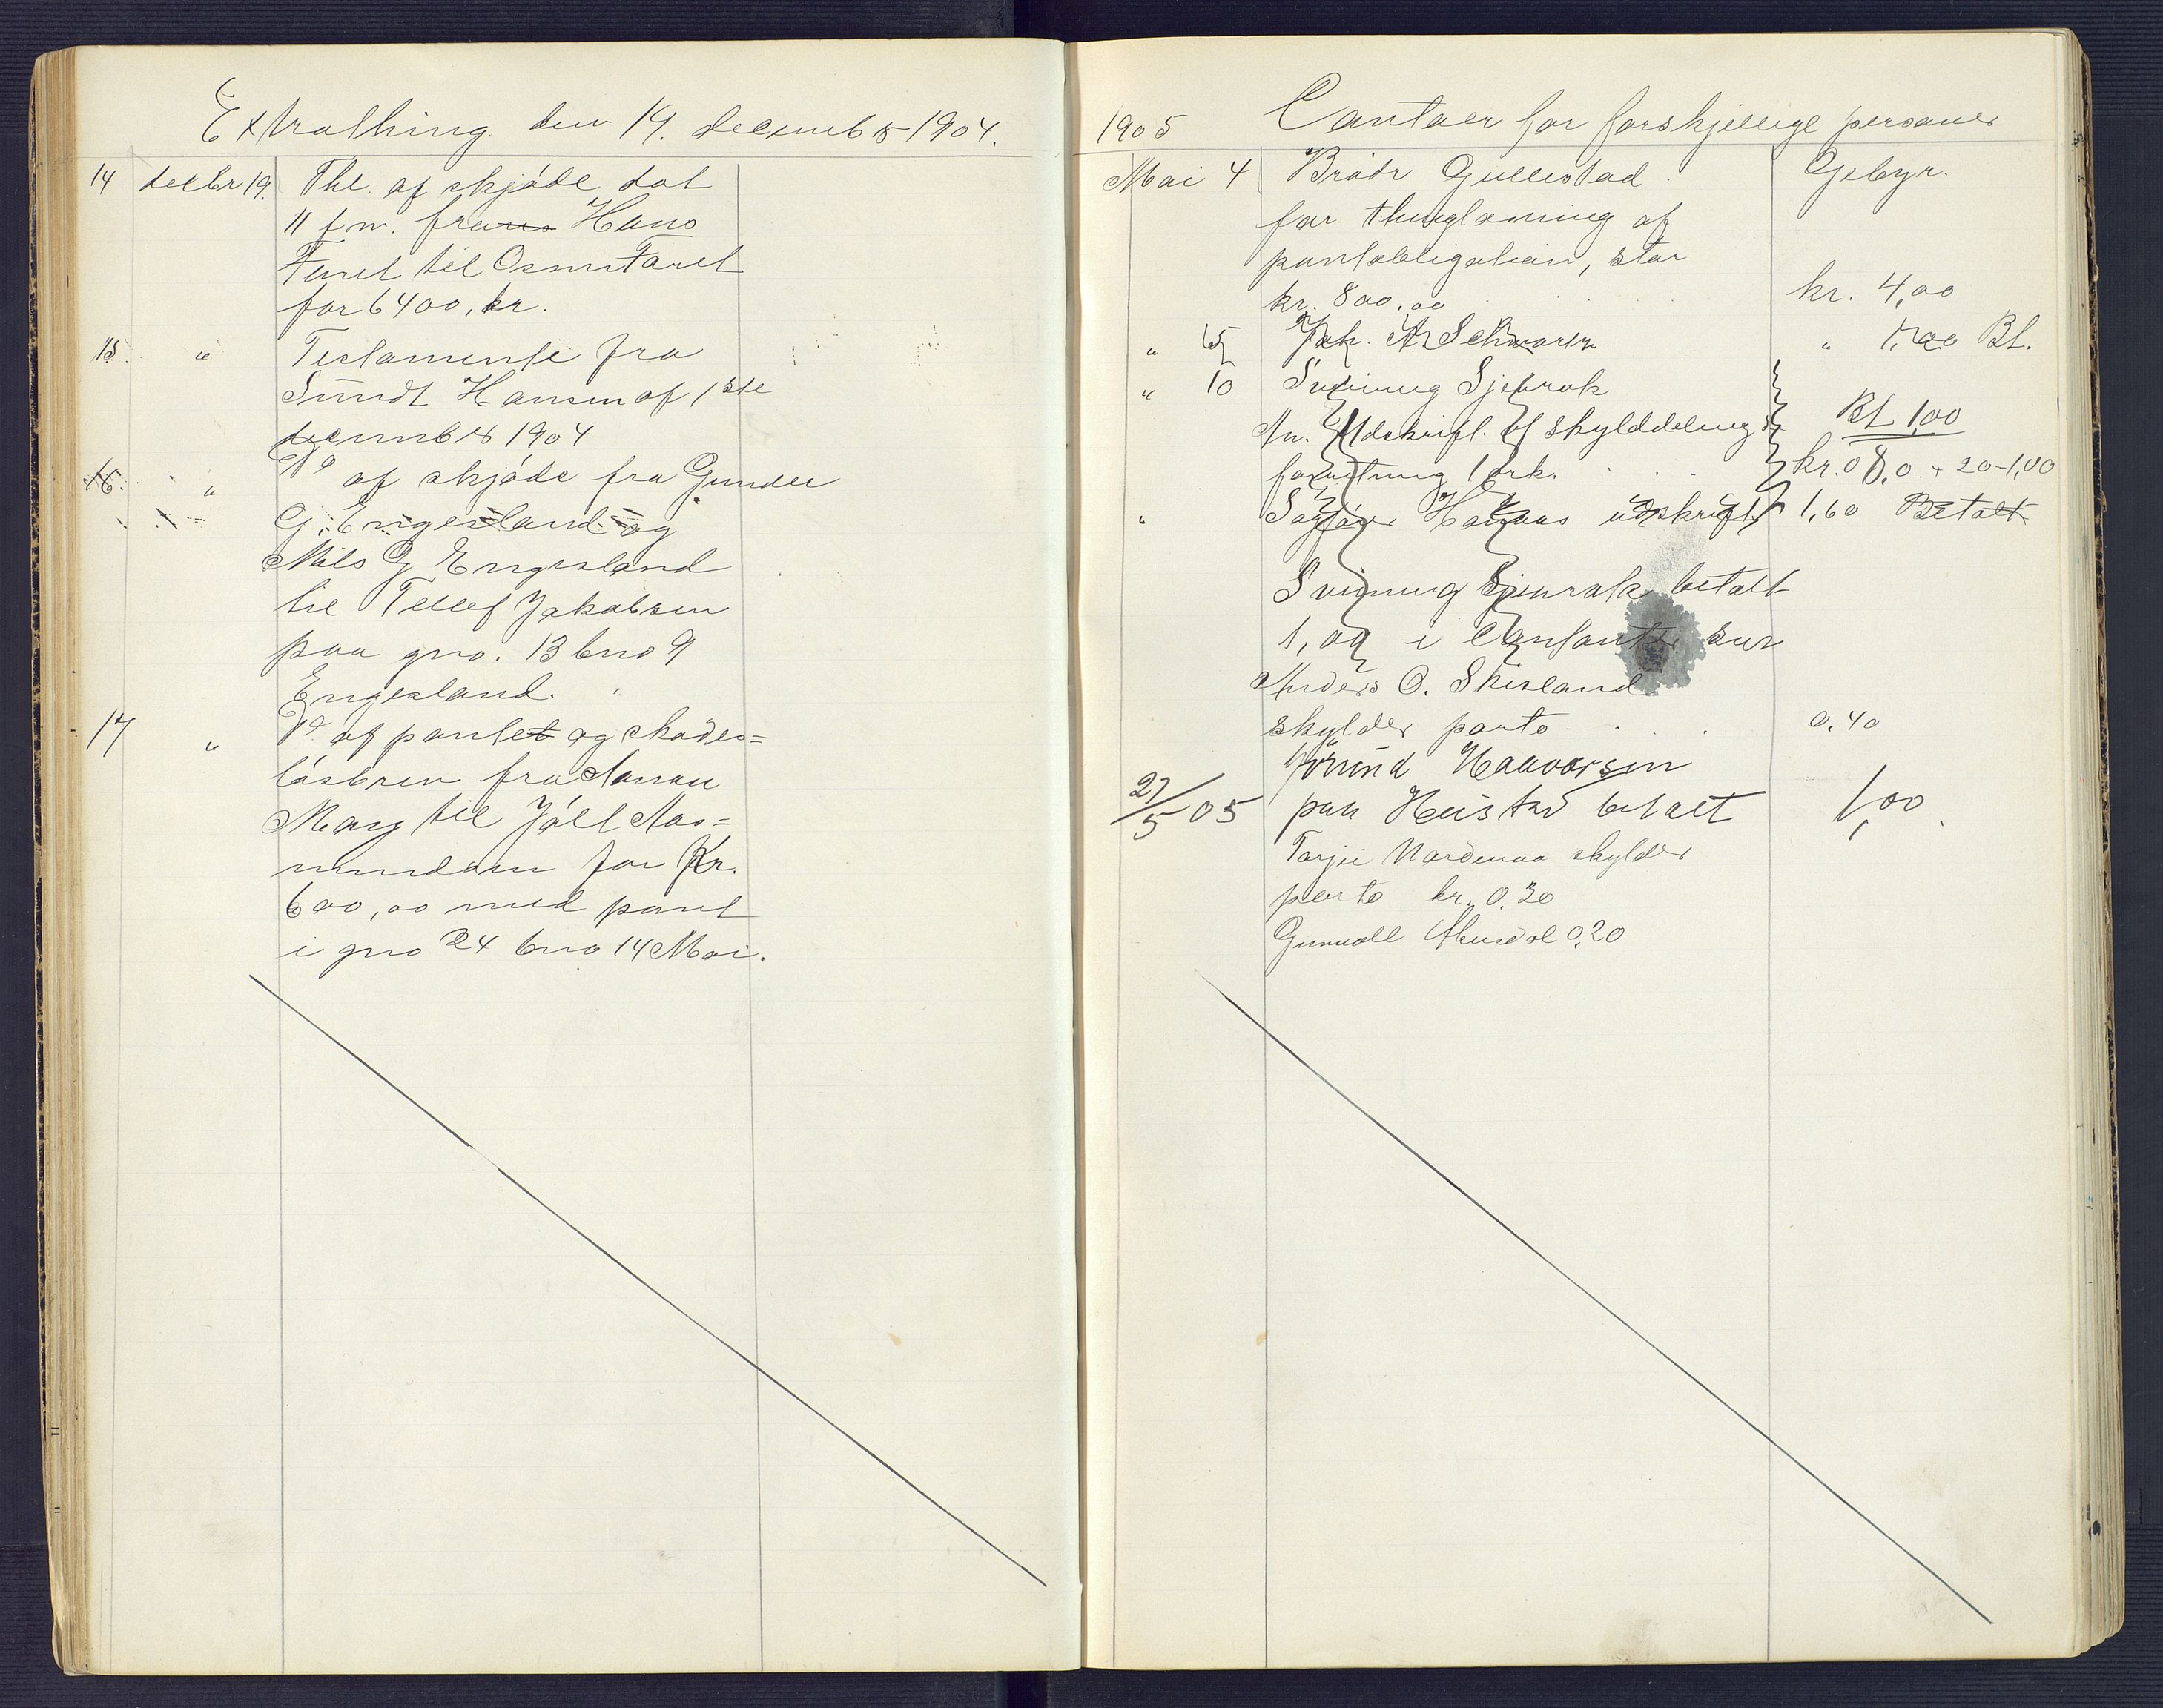 Extrathing den 19. december 1904.
14 decbr 19. Thl. af skjøde dat
11 f.m. fra Hans
Faret til Osmund Faret
for 6400, kr.
15 " Testamente fra
Sundt Hansen af 1ste
december 1904
16. " Do af skjøde fra Gunder
G. Engesland og
Nils G Engesland
til Tellef Jakobsen
paa gno. 13 bno 9
Engesland.
17 " Do af pante og skades=
løsbrev fra
Moey til Jøll Aas=
mundsen for Kr.
600,00 med pant
i gno 24 bno 14 Moi.
1905 Contoer for forskjellige personer
Mai 4 Brødr Gullestad Gebyr.
for thinglæsning af
pantobligation, stor
kr. 800,00 kr. 4,00
" 5 Joh. A Schwartz " 1,00 Bt.
" 10 Sveinung Sjeurak
An. Udskrift. af skylddeling Bt 1,00
forretning 1 ark. kr. 0 8,0 + 20 - 1,00
" Sagfører udskrift 1,60 Betalt
Sveinung Sjeurak betalt
1,00 i
Anders O. Skisland
skylder porto 0,40
Jørund Haavorsen
27/5 05 paa Heistad betalt 1,00
Tarjei skylder
porto kr. 0,30
Gunuald 0,20